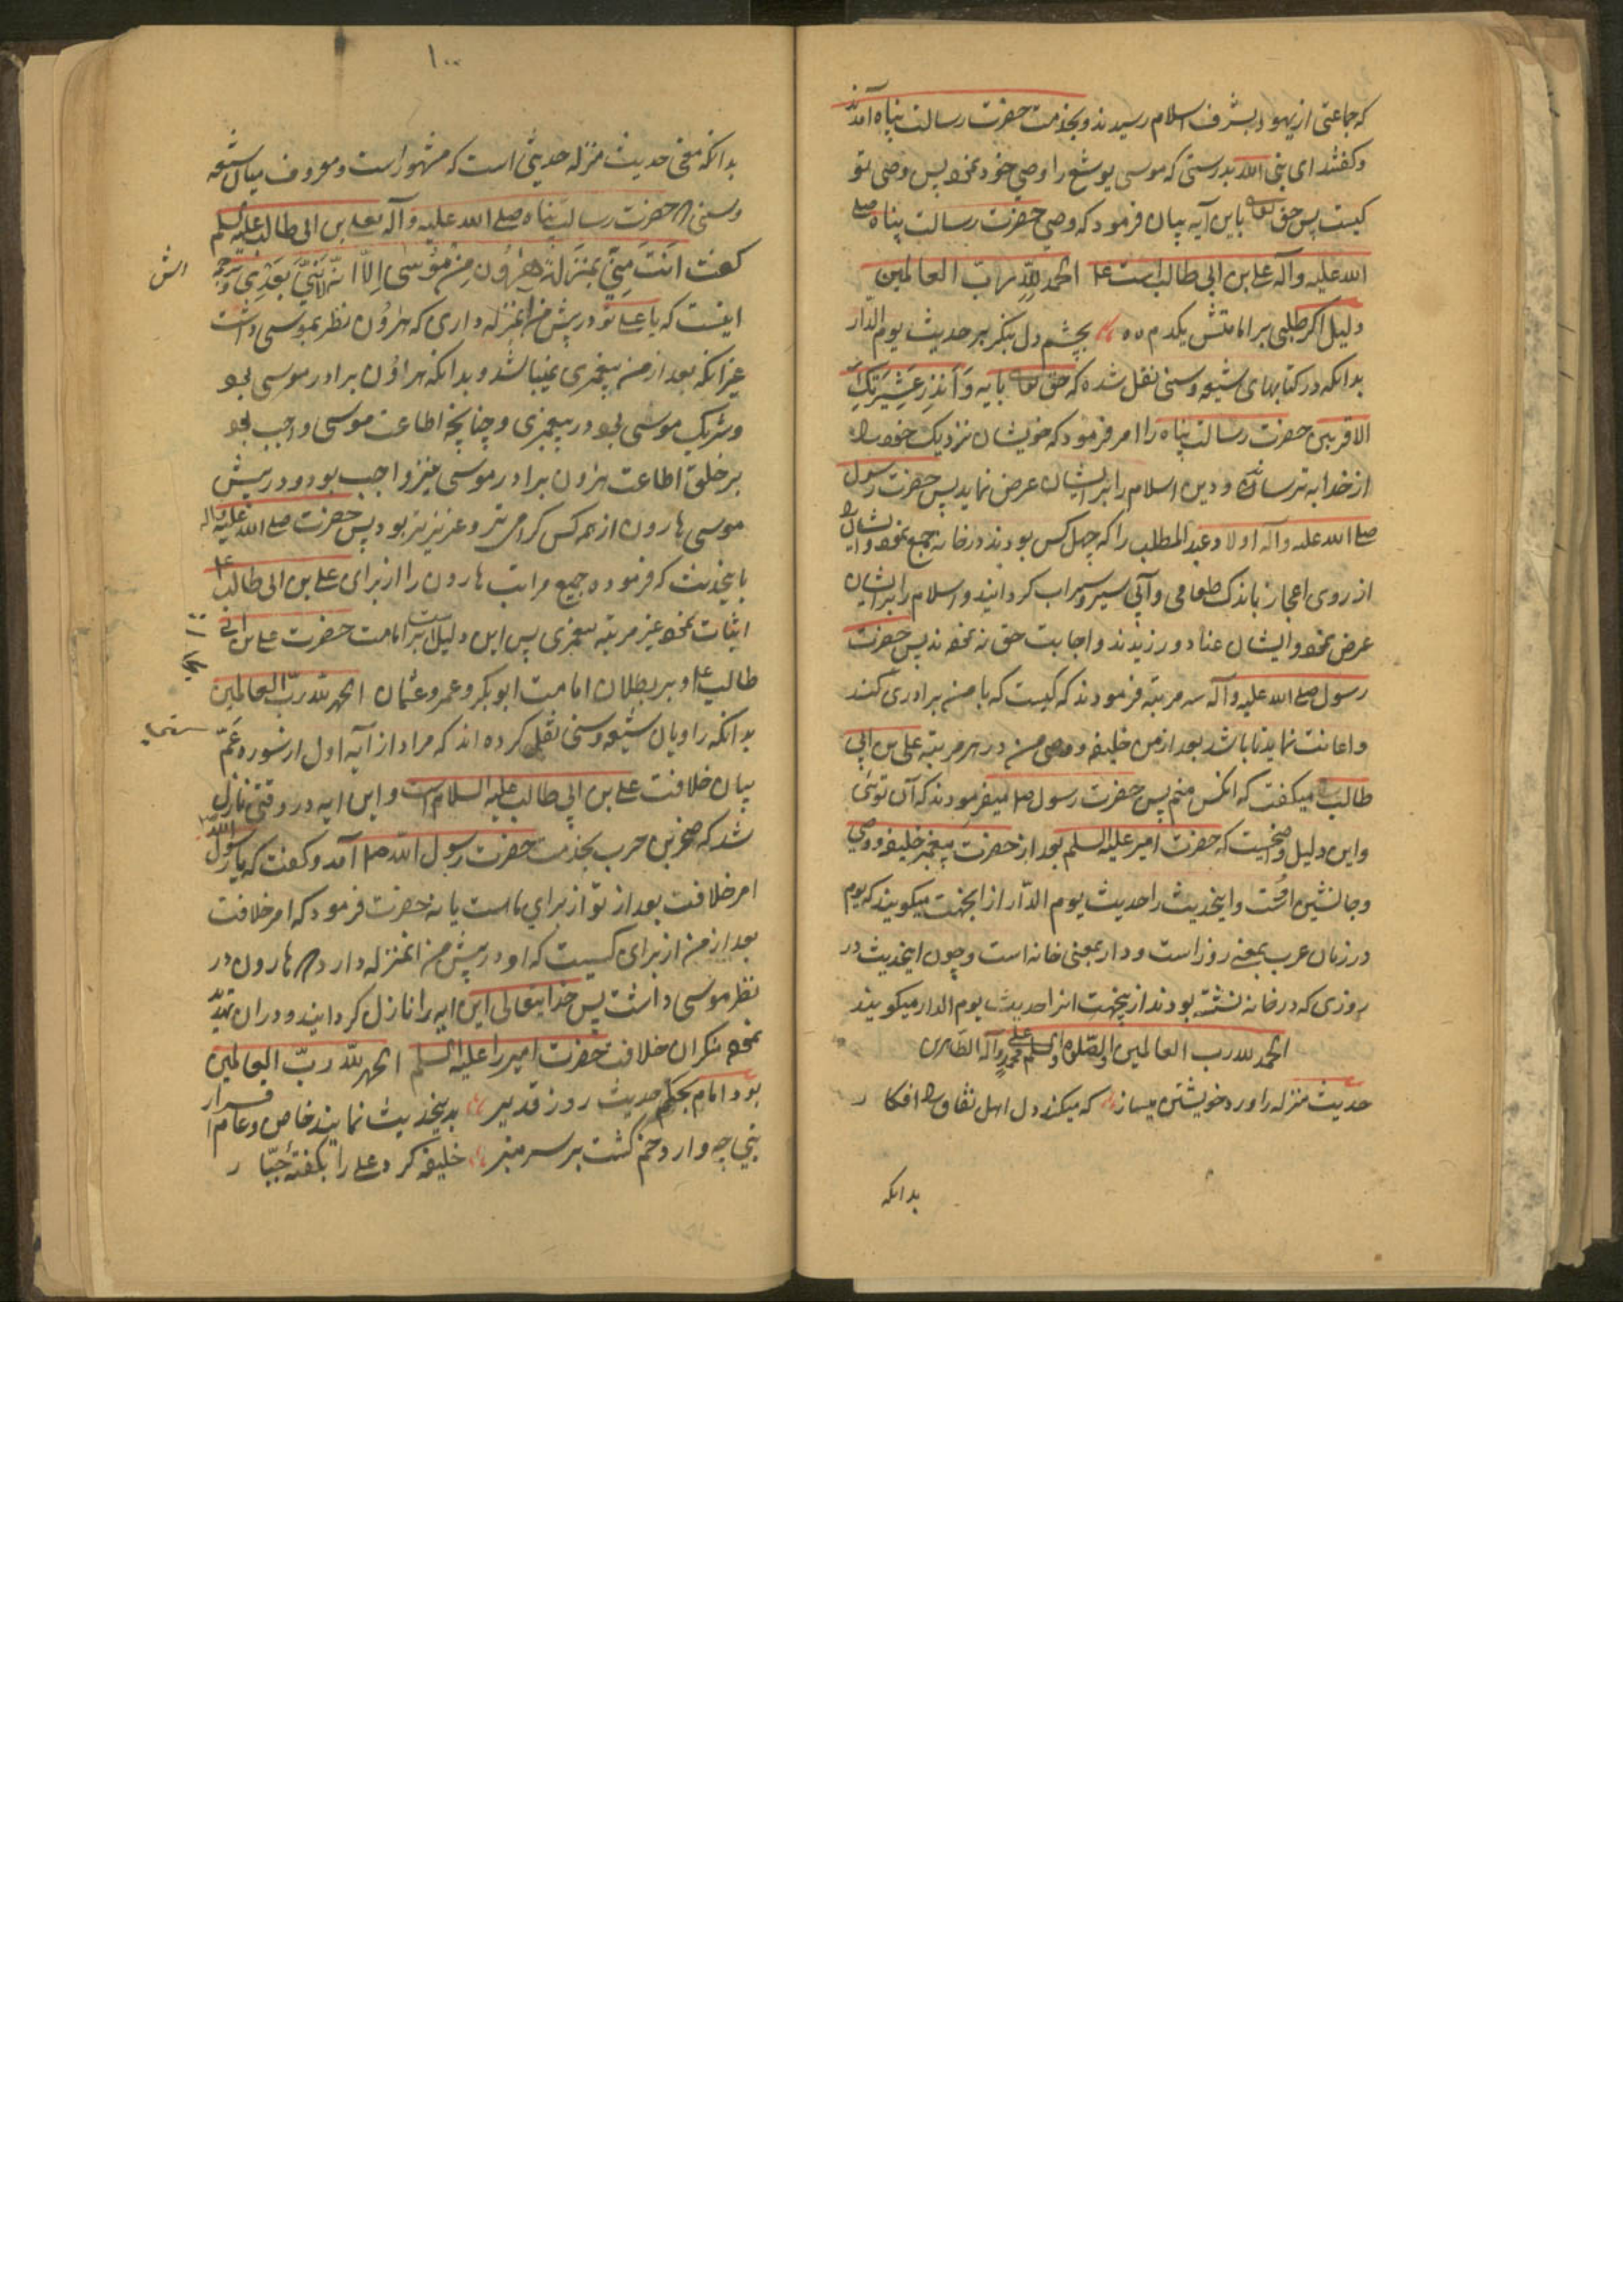 که جماعتی از یهود بشرف اسلام رسیدند و بخدمت حضرت رسالت پناه آمدند
و کفتند ای بنی الله بدرستی که موسی یوشع را وصی خود نمود پس وصی تو
کیست پس حق تعالی باین آیه بیان فرمود که وصی حضرت رسالت پناه صلی
الله علیه وآله علی بن ابی طالب است ع الحمد للّه ربّ العالمین
دلیل اکر طلبی بر امامتش یکدم بچشم دل بنکر بر حدیث یوم الدّار
بدانکه در کتابهای شیعه و سنی نقل شده که حق تعالی بایه وَاَنذِر عَشِیرَتَکَ
الاقربین حضرت رسالت پناه را امر فرمود که خویشان نزدیک خود را
از خدا به ترساند و دین اسلام را بر ایشان عرض نماید پس حضرت رسول
صلی الله علیه وآله اولاد عبد المطلب را که چهل کس بودند در خانه جمع نمود و ایشان را
از روی اعجاز باندک طعامی و آبی سیر و سیراب کردانید و اسلام را بر ایشان
عرض نمود و ایشان عناد ورزیدند و اجابت حق نه نمودند پس حضرت
رسول صلی الله علیه وآله سه مرتبه فرمودند که کیست که با من برادری کند
و اعانت نماید تا باشد بعد از من خلیفه و وصی من در هر مرتبه علی بن ابی
طالب میکفت که انکس منم پس حضرت رسول ص میفرمودند که آن توئی
و این دلیل واضحیست که حضرت امیر علیه السلم بعد از حضرت پیغمبر خلیفه و وصی
و جانشین اوست و اینحدیث را حدیث یوم الدّار از اینجهت میکویند که یوم
در زبان عرب بمعنی روز است و دار بمعنی خانه است و چون اینحدیث در
روزی که در خانه نشسته بودند ازینجهت انرا حدیث یوم الدار میکویند
الحمد لله رب العالمین والصّلوة والسلم علی محمد وآله الطاهرین
حدیث منزله را ورد خویشتن میساز که میکند دل اهل نفاق را افکار
بدانکه
۱۰۰
بدانکه معنی حدیث منزله حدیثی است که مشهور است و معروف میان شیعه
و سنی که حضرت رسالت پناه صلی الله علیه وآله بعلی بن ابی طالب علیه السلم
کفت اَنتَ مِنّی بمَنزلةِ هٰرُونَ مِن مُوسٰی اِلاّ اَنّه لانَبیَّ بَعدِی و ترجمه
اینست که یا علی تو در پیش من انمنزله داری که هرون نظر بموسی داشت
غیر انکه بعد از من پیغمبری نمیباشد و بدانکه هرون برادر موسی بود
و شریک موسی بود در پیغمبری و چنانچه اطاعت موسی واجب بود
بر خلق اطاعت هرون برادر موسی نیز واجب بود و در پیش
موسی هارون از همه کس کرامی تر و عزیز تر بود پس حضرت صلی الله علیه وآله
باینحدیث که فرموده جمیع مراتب هارون را از برای علی بن ابی طالب ع
اثبات نمود غیر مرتبه پیغمبری پس این دلیلست بر امامت حضرت علی بن ابی
طالب ع و بر بطلان امامت ابوبکر و عمر و عثمان الحمد لله ربّ العالمین
بدانکه راویان شیعه و سنی نقل کرده اند که مراد از آیه اول از سوره عَمّ
بیان خلافت علی بن ابی طالب علیه السلام است و این ایه در وقتی نازل
شد که صخر بن حرب بخدمت حضرت رسول الله ص آمد و کفت که یا رسول الله
امر خلافت بعد از تو از برای ماست یا نه حضرت فرمود که امر خلافت
بعد از من از برای کسیست که او در پیش من انمنزله دارد که هارون در
نظر موسی داشت پس خدایتعالی این ایه را نازل کردانید و دران تهدید
نمود منکران خلافت حضرت امیر را علیه السلم الحمد للّه ربّ العالمین
بود امام بحکم حدیث روز قدیر بدینحدیث نمایند خاص و عام اقرار
نبی چه وارد خم کشت بر سر منبر خلیفه کرد علی را بکفتهٔ جبّار